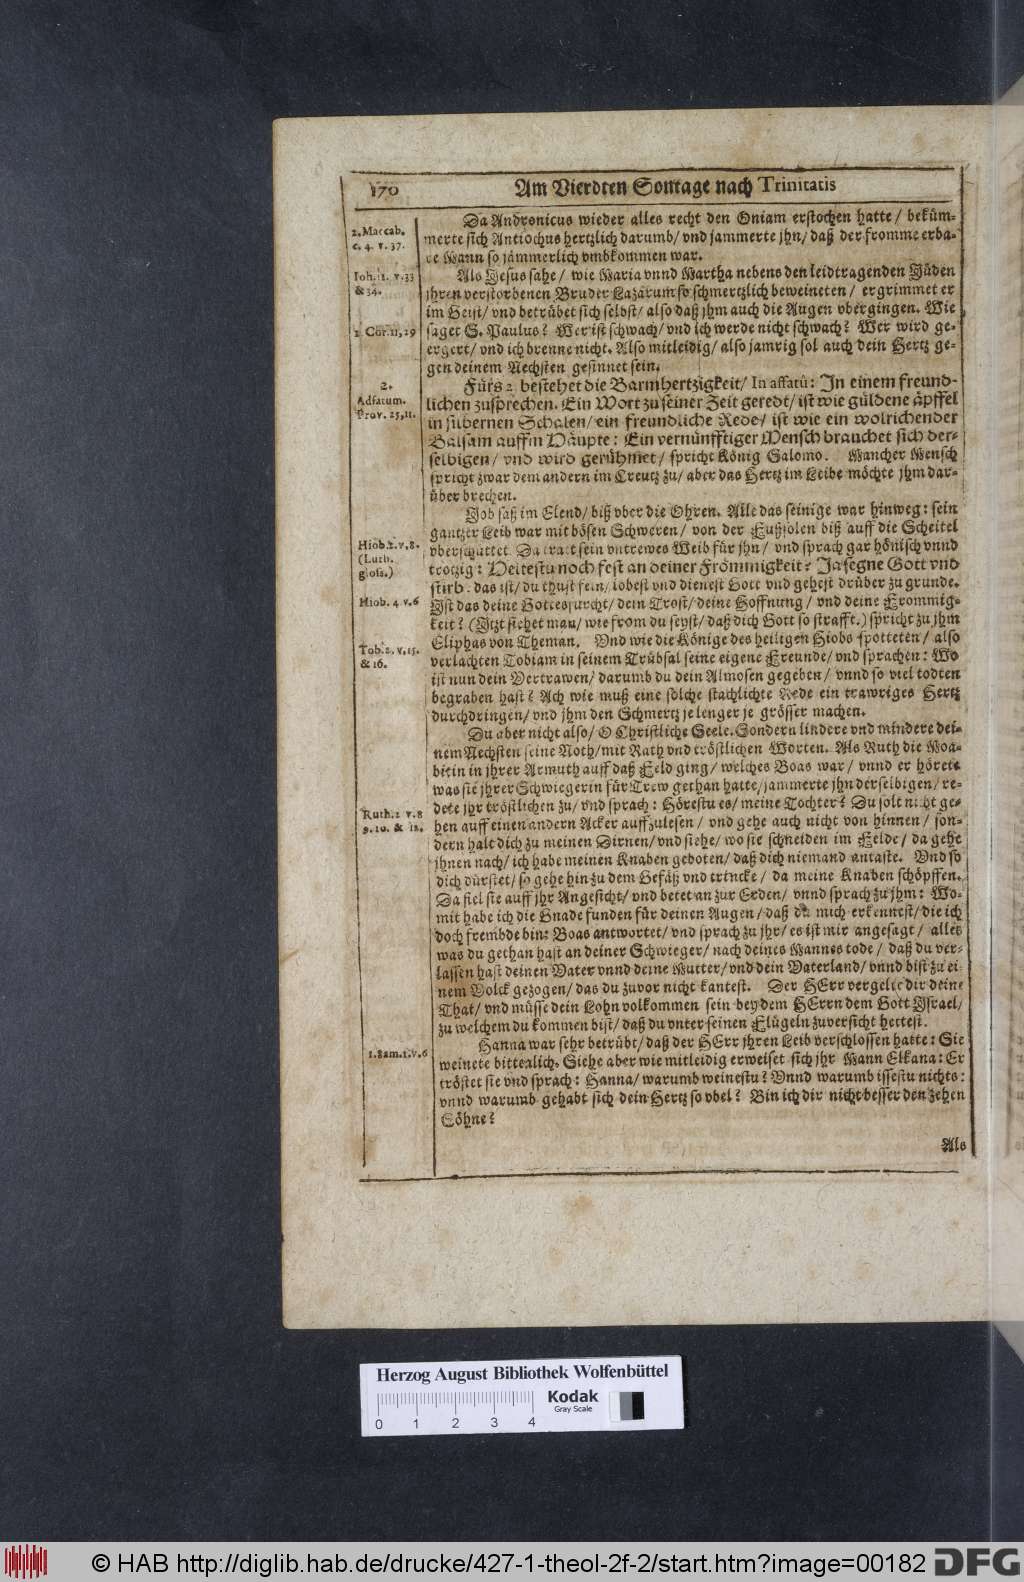 170 Am Vierdten Sontage nach Trinitatis
2. Maccab.
c. 4. v. 37.
Joh. 11. v. 33
& 34.
1. Cor. 11, 29
2.
Adfatum.
Prov. 25, 11.
Hiob. 2. v. 8.
(Luth.
gloss.)
Hiob. 4 v. 6
Tob. 2. v. 15.
& 16.
Ruth. 2 v. 8
9. 10. & 12.
1. Sam. 1. v. 6
Da Andronicus wieder alles recht den Oniam erstochen hatte / beküm-
merte sich Antiochus hertzlich darumb / vnd jammerte jhn / daß der fromme erba-
re Mann so jämmerlich vmbkommen war.
Als Jesus sahe / wie Maria vnnd Martha nebens den leidtragenden Jüden
jhren verstorbenen Bruder Lazarum so schmertzlich beweineten / ergrimmet er
im Geist / vnd betrübet sich selbst / also daß jhm auch die Augen vbergingen. Wie
saget S. Paulus? Wer ist schwach / vnd ich werde nicht schwach? Wer wird ge-
ergert / vnd ich brenne nicht. Also mitleidig / also jamrig sol auch dein Hertz ge-
gen deinem Nechsten gesinnet sein.
Fürs 2. bestehet die Barmhertzigkeit / In affatû: In einem freund-
lichen zusprechen. Ein Wort zu seiner Zeit geredt / ist wie güldene äpffel
in silbernen Schalen / ein freundliche Rede / ist wie ein wolrichender
Balsam auffm Häupte: Ein vernünfftiger Mensch brauchet sich der-
selbigen / vnd wird gerühmet / spricht König Salomo. Mancher Mensch
spricht zwar dem andern im Creutz zu / aber das Hertz im Leibe möchte jhm dar-
über brechen.
Job saß im Elend / biß vber die Ohren. Alle das seinige war hinweg: sein
gantzer Leib war mit bösen Schweren / von der Fußsolen biß auff die Scheitel
vberschüttet. Da tratt sein vntrewes Weib für jhn / vnd sprach gar hönisch vnnd
trotzig: Heltestu noch fest an deiner Frömmigkeit? Ja segne Gott vnd
stirb. das ist / du thust fein / lobest vnd dienest Gott vnd gehest drüber zu grunde.
Ist das deine Gottesfurcht / dein Trost / deine Hoffnung / vnd deine Frommig-
keit? (Jtzt siehet man / wie from du seyst / daß dich Gott so strafft.) spricht zu jhm
Eliphas von Theman. Vnd wie die Könige des heiligen Hiobs spotteten / also
verlachten Tobiam in seinem Trübsal seine eigene Freunde / vnd sprachen: Wo
ist nun dein Vertrawen / darumb du dein Almosen gegeben / vnnd so viel todten
begraben hast? Ach wie muß eine solche stachlichte Rede ein trawriges Hertz
durchdringen / vnd jhm den Schmertz je lenger je grösser machen.
Du aber nicht also / O Christliche Seele. Sondern lindere vnd mindere dei-
nem Nechsten seine Noth / mit Rath vnd tröstlichen Worten. Als Ruth die Moa-
bitin in jhrer Armuth auff daß Feld ging / welches Boas war / vnnd er hörete
was sie jhrer Schwiegerin für Trew gethan hatte / jammerte jhn derselbigen / re-
dete jhr tröstlichen zu / vnd sprach: Hörestu es / meine Tochter? Du solt nicht ge-
hen auff einen andern Acker auffzulesen / vnd gehe auch nicht von hinnen / son-
dern halt dich zu meinen Dirnen / vnd siehe / wo sie schneiden im Felde / da gehe
jhnen nach / ich habe meinen Knaben geboten / daß dich niemand antaste. Vnd so
dich dürstet / so gehe hin zu dem Gefäß vnd trincke / da meine Knaben schöpffen.
Da fiel sie auff jhr Angesicht / vnd betet an zur Erden / vnnd sprach zu jhm: Wo-
mit habe ich die Gnade funden für deinen Augen / daß du mich erkennest / die ich
doch frembde bin: Boas antwortet / vnd sprach zu jhr / es ist mir angesagt / alles
was du gethan hast an deiner Schwieger / nach deines Mannes tode / daß du ver-
lassen hast deinen Vater vnnd deine Mutter / vnd dein Vaterland / vnnd bist zu ei-
nem Volck gezogen / das du zuvor nicht kantest. Der HErr vergelte dir deine
That / vnd müsse dein Lohn volkommen sein bey dem HErrn dem Gott Jsrael /
zu welchem du kommen bist / daß du vnter seinen Flügeln zuversicht hettest.
Hanna war sehr betrübt / daß der HErr jhren Leib verschlossen hatte: Sie
weinete bitterlich. Siehe aber wie mitleidig erweiset sich jhr Mann Elkana: Er
tröstet sie vnd sprach: Hanna / warumb weinestu? Vnnd warumb issestu nichts:
vnnd warumb gehabt sich dein Hertz so vbel? Bin ich dir nicht besser den zehen
Söhne?
Als
Herzog August Bibliothek Wolfenbüttel
Kodak
Gray Scale
0 1 2 3 4
© HAB http://diglib.hab.de/drucke/427-1-theol-2f-2/start.htm?image=00182 DFG